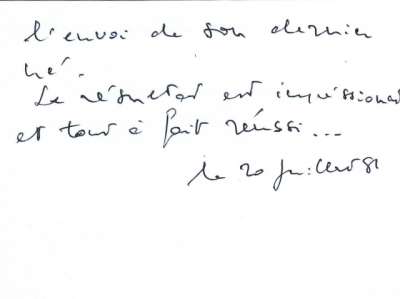 l'envoi de son dernier
né.
Le résultat est impressionnant
et tout à fait réussi...
le 20 juillet 81